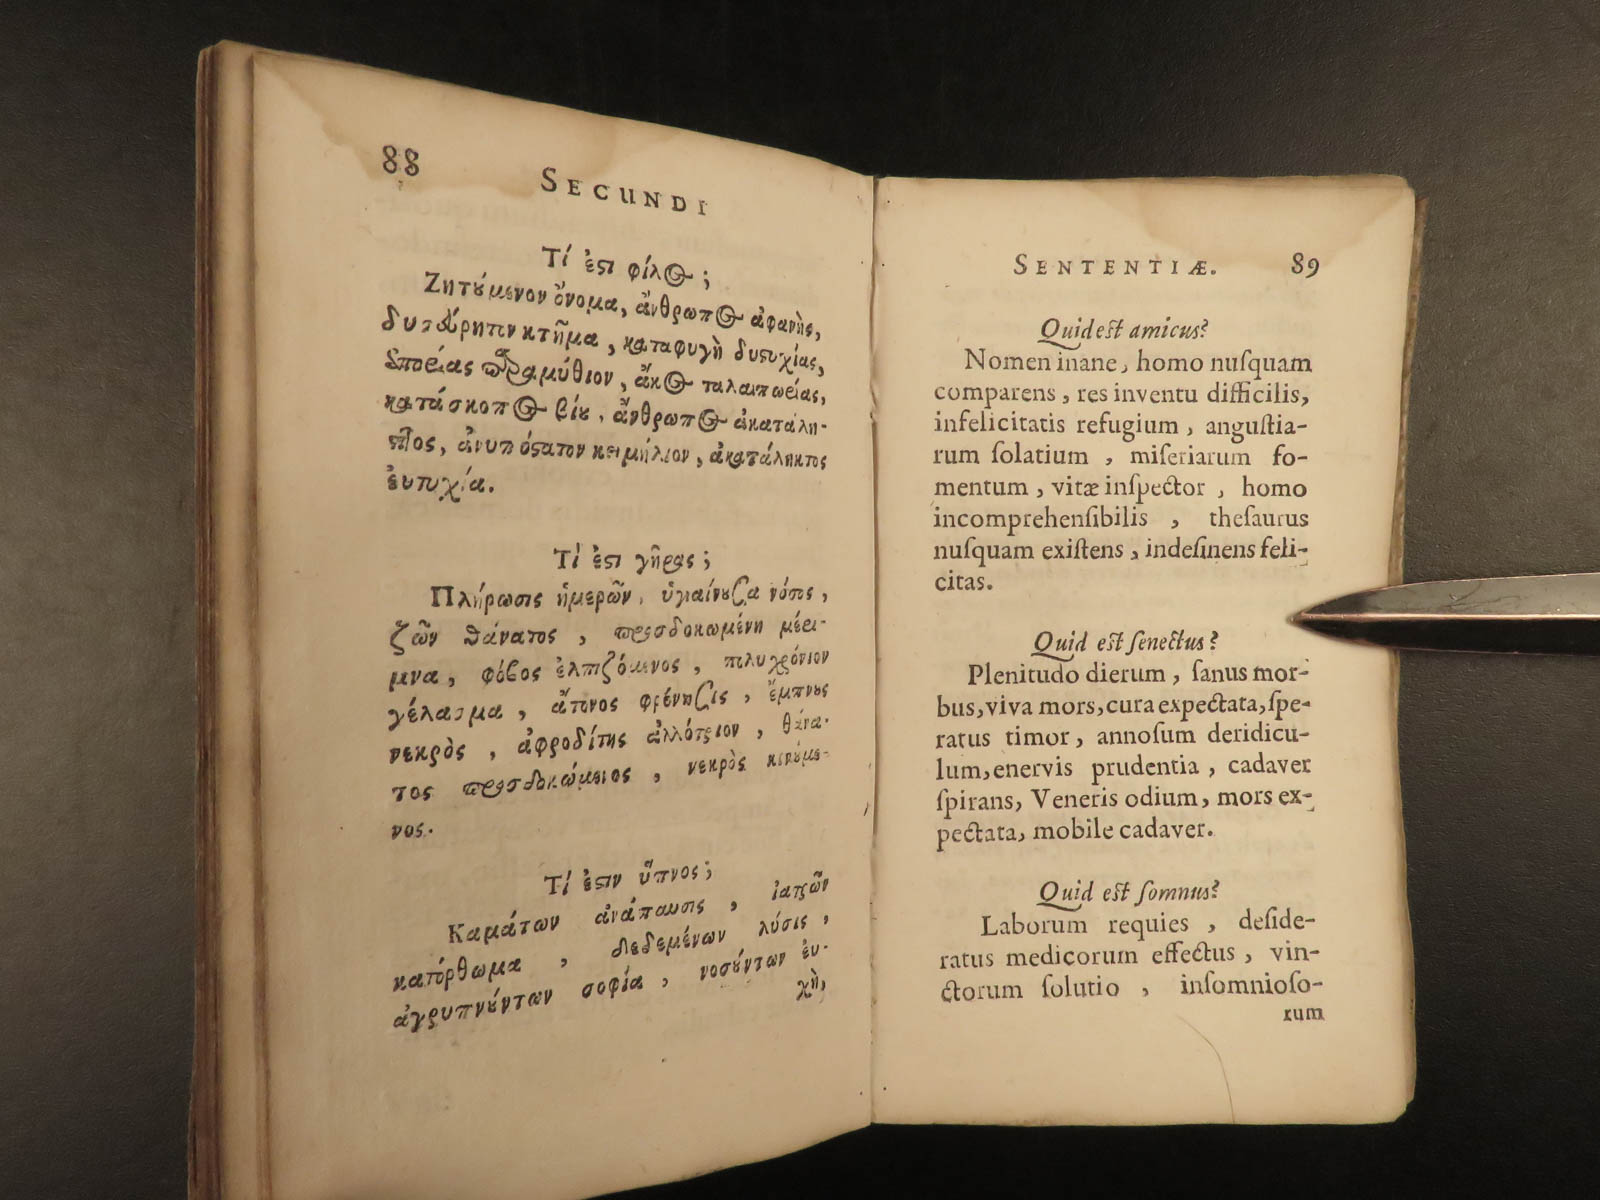 88
SECUNDI
Τί ἐστι φίλος;
Ζητούμενον ὄνομα, ἄνθρωπος ἀφανὴς,
δυσεύρητον κτῆμα, καταφυγὴ δυστυχίας,
ἀπορίας παραμύθιον, ἄκος ταλαιπωρίας,
κατάσκοπος βίου, ἄνθρωπος ἀκατάλη-
πτος, ἀνυπόστατον κειμήλιον, ἀκατάληκτος
ἐυτυχία.
Τί ἐστι γῆρας;
Πλήρωσις ἡμερῶν, ὑγιαίνουσα νόσος,
ζῶν θάνατος, προσδοκωμένη μέρι-
μνα, φόβος ἐλπιζόμενος, πολυχρόνιον
γέλασμα, ἄτονος φρένησις, ἔμπνους
νεκρὸς, ἀφροδίτης ἀλλότριον, θάνα-
τος προσδοκώμενος, νεκρὸς κινούμε-
νος.
Τί ἐστιν ὕπνος;
Καμάτων ἀνάπαυσις, ἰατρῶν
κατόρθωμα, δεδεμένων λύσις,
ἀγρυπνούντων σοφία, νοσούντων ἐυ-
χὴ,
SENTENTIÆ. 89
Quid est amicus?
Nomen inane, homo nuſquam
comparens, res inventu difficilis,
infelicitatis refugium, anguſtia-
rum ſolatium, miſeriarum fo-
mentum, vitæ inſpector, homo
incomprehenſibilis, theſaurus
nuſquam exiſtens, indeſinens feli-
citas.
Quid est ſenectus?
Plenitudo dierum, ſanus mor-
bus, viva mors, cura expectata, ſpe-
ratus timor, annoſum deridicu-
lum, enervis prudentia, cadaver
ſpirans, Veneris odium, mors ex-
pectata, mobile cadaver.
Quid est ſomnus?
Laborum requies, deſide-
ratus medicorum effectus, vin-
ctorum ſolutio, inſomnioſo-
rum